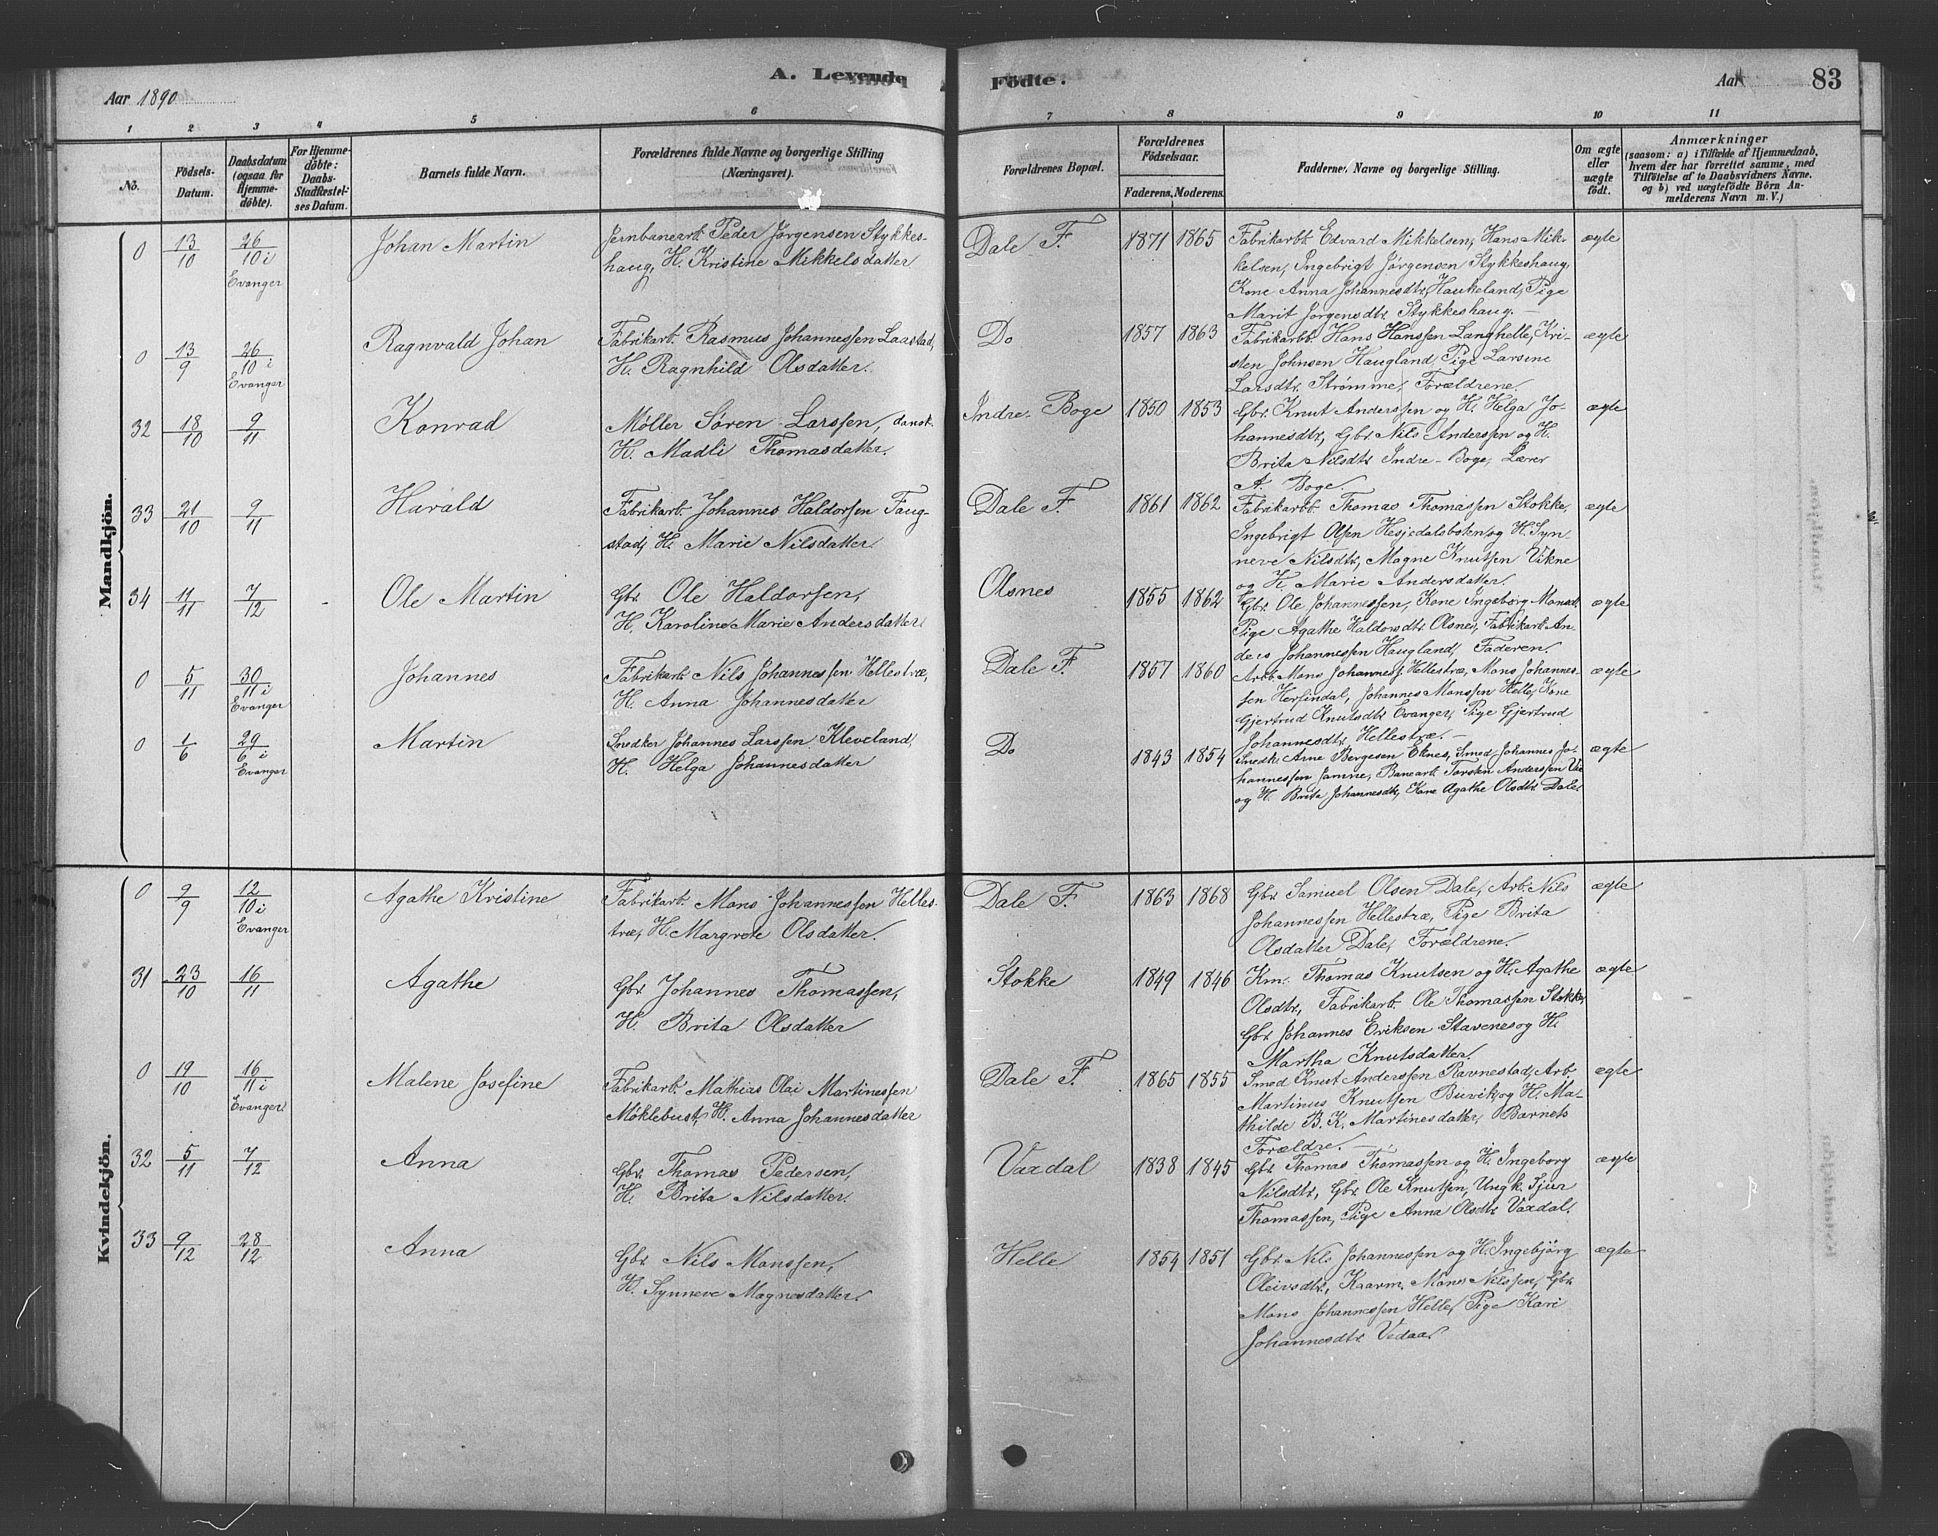 Aar 1890
A. Levende Födte.
Aar
83
1 2 3 4 5 6 7 8 9 10 11
No.
Födsels-Datum.
Daabsdatum (ogsaa for Hjemme-döbte).
For Hjemme-döbte: Daabs-Stadfæstel-ses Datum.
Barnets fulde Navn.
Forældrenes fulde Navne og borgerlige Stilling (Næringsvei).
Forældrenes Bopæl.
Forældrenes Födselsaar.
Faderens. Moderens.
Faddernes Navne og borgerlige Stilling.
Om ægte eller uægte födt.
Anmærkninger
(saasom: a) i Tilfælde af Hjemmedaab, hvem der har forrettet samme, med Tilföielse af to Daabsvidners Navne, og b) ved uægtefödte Börn An-melderens Navn m. V.)
Mandkjön.
0 13/10 26/10 i Evanger Johan Martin
Jernbanearb. Peder Jørgensen Stykkes-
haug, H. Kristine Mikkelsdatter
Dale F. 1871 1865
Fabrikarbt. Edvard Mikkelsen, Hans Mik-
kelsen, Ingebrigt Jørgensen Stykkeshaug,
Kone Anna Johannesdtr. Haukeland, Pige
Marit Jørgensdtr. Stykkeshaug.
ægte
0 13/9 26/10 i Evanger Ragnvald Johan
Fabrikarb. Rasmus Johannessen Laastad,
H. Ragnhild Olsdatter.
Do 1857 1863
Fabrikarb. Hans Hanssen Langhelle, Kri-
sten Johnsen Haugland, Pige Larsine
Larsdtr. Strømme, Forældrene.
ægte
32 18/10 9/11 Konrad
Møller Søren Larssen, dansk
H. Madli Thomasdatter.
Indre Boge 1850 1853
Gbr. Knut Anderssen og H. Helga Jo-
hannesdtr., Gbr. Nils Anderssen og H.
Brita Nilsdtr. Indre-Boge, Lærer
A. Boge
ægte
33 21/10 9/11 Harald
Fabrikarb. Johannes Haldorsen Faug-
stad, H. Marie Nilsdatter.
Dale F. 1861 1862
Fabrikarbt. Thomas Thomassen Stokke,
Ingebrigt Olsen Hesjedalsboten og H. Syn-
neve Nilsdtr, Magne Knutsen Vikne
og H. Marie Andersdatter.
ægte
34 11/11 7/12 Ole Martin
Gbr. Ole Haldorsen,
H. Karoline Marie Andersdatter.
Olsnes 1855 1862
Gbr. Ole Johannessen, Kone Ingeborg Monsdt.
Pige Agathe Haldorsdtr. Olsnes, Fabrikarb. An-
ders Johannessen Haugland, Faderen.
ægte
0 5/11 30/11 i Evanger Johannes
Fabrikarb. Nils Johannessen Hellestræ,
H. Anna Johannesdatter
Dale F. 1857 1860
Arb. Mons Johanness. Hellestræ, Mons Johannes-
sen Herfindal, Johannes Monssen Helle, Kone
Gjertrud Knutsdtr. Evanger, Pige Gjertrud
Johannesdtr. Hellestræ.
ægte
0 1/6 29/6 i Evanger Martin
Snedker Johannes Larssen Kleveland,
H. Helga Johannesdatter
Do 1843 1854
Snedk. Arne Bergesen Eknes, Smed Johannes Jo-
hannessen Jamne, Banearb. Torsten Anderssen
og H. Brita Johannesdt, Kone Agathe Olsdtr. Dale
ægte
Kvindekjön.
0 9/9 12/10 i Evanger Agathe Kristine
Fabrikarb. Mons Johannessen Helles-
træ, H. Margrete Olsdatter.
Dale F. 1863 1868
Gbr. Samuel Olsen Dale, Arb. Nils
Johannessen Hellestræ, Pige Brita
Olsdatter Dale, Forældrene.
ægte
31 23/10 16/11 Agathe
Gbr. Johannes Thomassen,
H. Brita Olsdatter
Stokke 1849 1846
Km. Thomas Knutsen og H. Agathe
Olsdtr., Fabrikarb. Ole Thomassen Stokke,
Gbr. Johannes Eriksen Stavenes og H.
Martha Knutsdatter.
ægte
0 19/10 16/11 i Evanger Malene Josefine
Fabrikarb. Mathias Olai Martinessen
Møklebust, H. Anna Johannesdatter
Dale F. 1865 1855
Smed Knut Anderssen Ravnestad, Arb.
Martinus Knutsen Buvik og H. Ma-
thilde B. K. Martinesdatter, Barnets
Forældre.
ægte
32 5/11 7/12 Anna
Gbr. Thomas Pedersen,
H. Brita Nilsdatter.
Vaxdal 1838 1845
Gbr. Thomas Thomassen og H. Ingeborg
Nilsdtr., Gbr. Ole Knutsen, Ungk. Sjur
Thomassen, Pige Anna Olsdtr. Vaxdal.
ægte
33 9/12 28/12 Anna
Gbr. Nils Monssen,
H. Synneve Magnesdatter.
Helle 1854 1851
Gbr. Nils Johannessen og H. Ingebjörg
Oleivsdtr., Kaarm. Mons Nilssen, Gbr.
Mons Johannessen Helle, Pige Kari
Johannesdtr. Vedaa
ægte